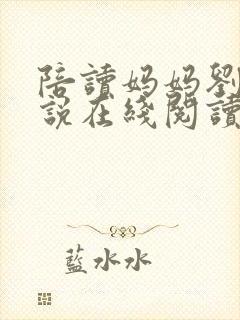 陪讀妈妈劉
說在綫閱讀
藍水水